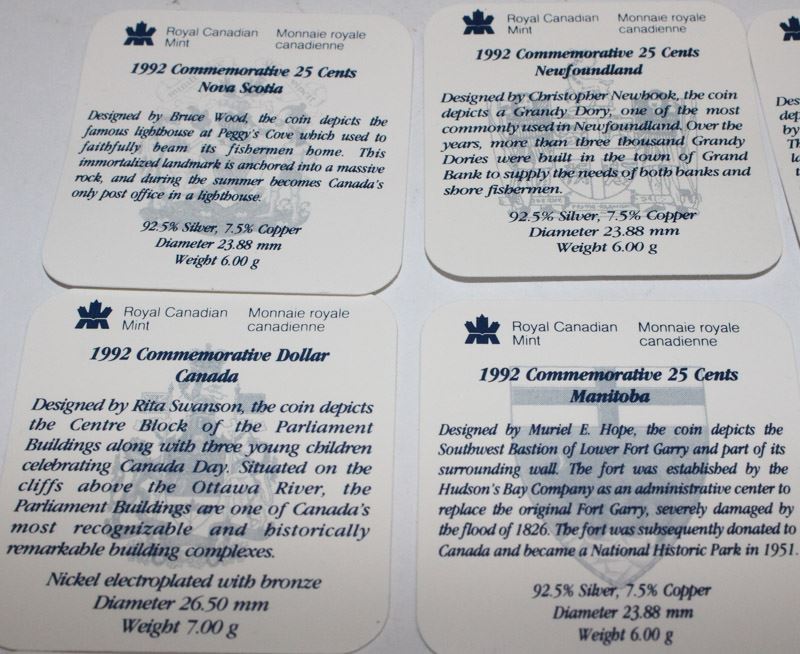 Royal Canadian Mint
Monnaie royale canadienne
1992 Commemorative 25 Cents
Nova Scotia
Designed by Bruce Wood, the coin depicts the
famous lighthouse at Peggy's Cove which used to
faithfully beam its fishermen home. This
immortalized landmark is anchored into a massive
rock, and during the summer becomes Canada's
only post office in a lighthouse.
92.5% Silver, 7.5% Copper
Diameter 23.88 mm
Weight 6.00 g
Royal Canadian Mint
Monnaie royale canadienne
1992 Commemorative 25 Cents
Newfoundland
Designed by Christopher Newhook, the coin
depicts a Grandy Dory, one of the most
commonly used in Newfoundland. Over the
years, more than three thousand Grandy
Dories were built in the town of Grand
Bank to supply the needs of both banks and
shore fishermen.
92.5% Silver, 7.5% Copper
Diameter 23.88 mm
Weight 6.00 g
Royal Canadian Mint
Monnaie royale canadienne
1992 Commemorative Dollar
Canada
Designed by Rita Swanson, the coin depicts
the Centre Block of the Parliament
Buildings along with three young children
celebrating Canada Day. Situated on the
cliffs above the Ottawa River, the
Parliament Buildings are one of Canada's
most recognizable and historically
remarkable building complexes.
Nickel electroplated with bronze
Diameter 26.50 mm
Weight 7.00 g
Royal Canadian Mint
Monnaie royale canadienne
1992 Commemorative 25 Cents
Manitoba
Designed by Muriel E. Hope, the coin depicts the
Southwest Bastion of Lower Fort Garry and part of its
surrounding wall. The fort was established by the
Hudson's Bay Company as an administrative center to
replace the original Fort Garry, severely damaged by
the flood of 1826. The fort was subsequently donated to
Canada and became a National Historic Park in 1951.
92.5% Silver, 7.5% Copper
Diameter 23.88 mm
Weight 6.00 g